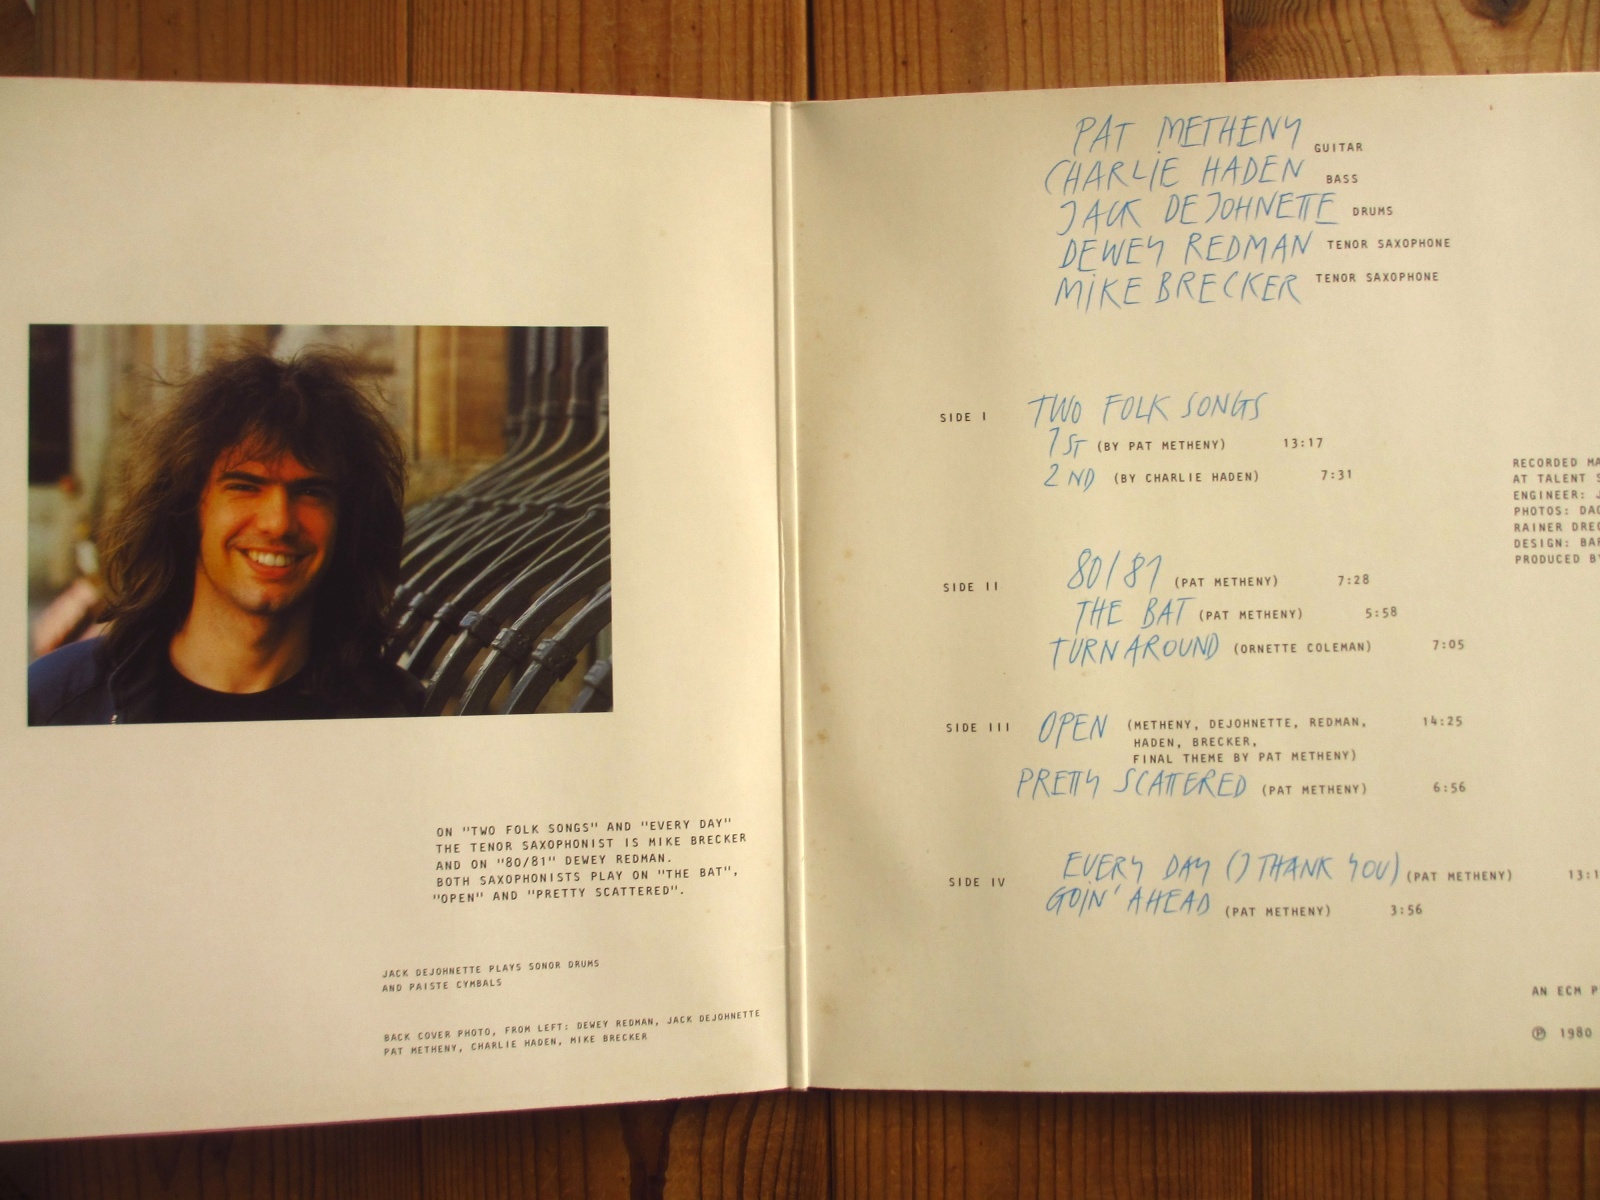 PAT METHENY GUITAR
CHARLIE HADEN BASS
JACK DEJOHNETTE DRUMS
DEWEY REDMAN TENOR SAXOPHONE
MIKE BRECKER TENOR SAXOPHONE
SIDE I TWO FOLK SONGS
1ST (BY PAT METHENY) 13:17
2ND (BY CHARLIE HADEN) 7:31
SIDE II 80/81 (PAT METHENY) 7:28
THE BAT (PAT METHENY) 5:58
TURNAROUND (ORNETTE COLEMAN) 7:05
SIDE III OPEN (METHENY, DEJOHNETTE, REDMAN, 14:25
HADEN, BRECKER,
FINAL THEME BY PAT METHENY)
PRETTY SCATTERED (PAT METHENY) 6:56
SIDE IV EVERY DAY (I THANK YOU) (PAT METHENY) 13:1
GOIN' AHEAD (PAT METHENY) 3:56
RECORDED MA
AT TALENT S
ENGINEER: J
PHOTOS: DAG
RAINER DREC
DESIGN: BAR
PRODUCED BY
AN ECM P
℗ 1980
ON "TWO FOLK SONGS" AND "EVERY DAY"
THE TENOR SAXOPHONIST IS MIKE BRECKER
AND ON "80/81" DEWEY REDMAN.
BOTH SAXOPHONISTS PLAY ON "THE BAT",
"OPEN" AND "PRETTY SCATTERED".
JACK DEJOHNETTE PLAYS SONOR DRUMS
AND PAISTE CYMBALS
BACK COVER PHOTO, FROM LEFT: DEWEY REDMAN, JACK DEJOHNETTE
PAT METHENY, CHARLIE HADEN, MIKE BRECKER